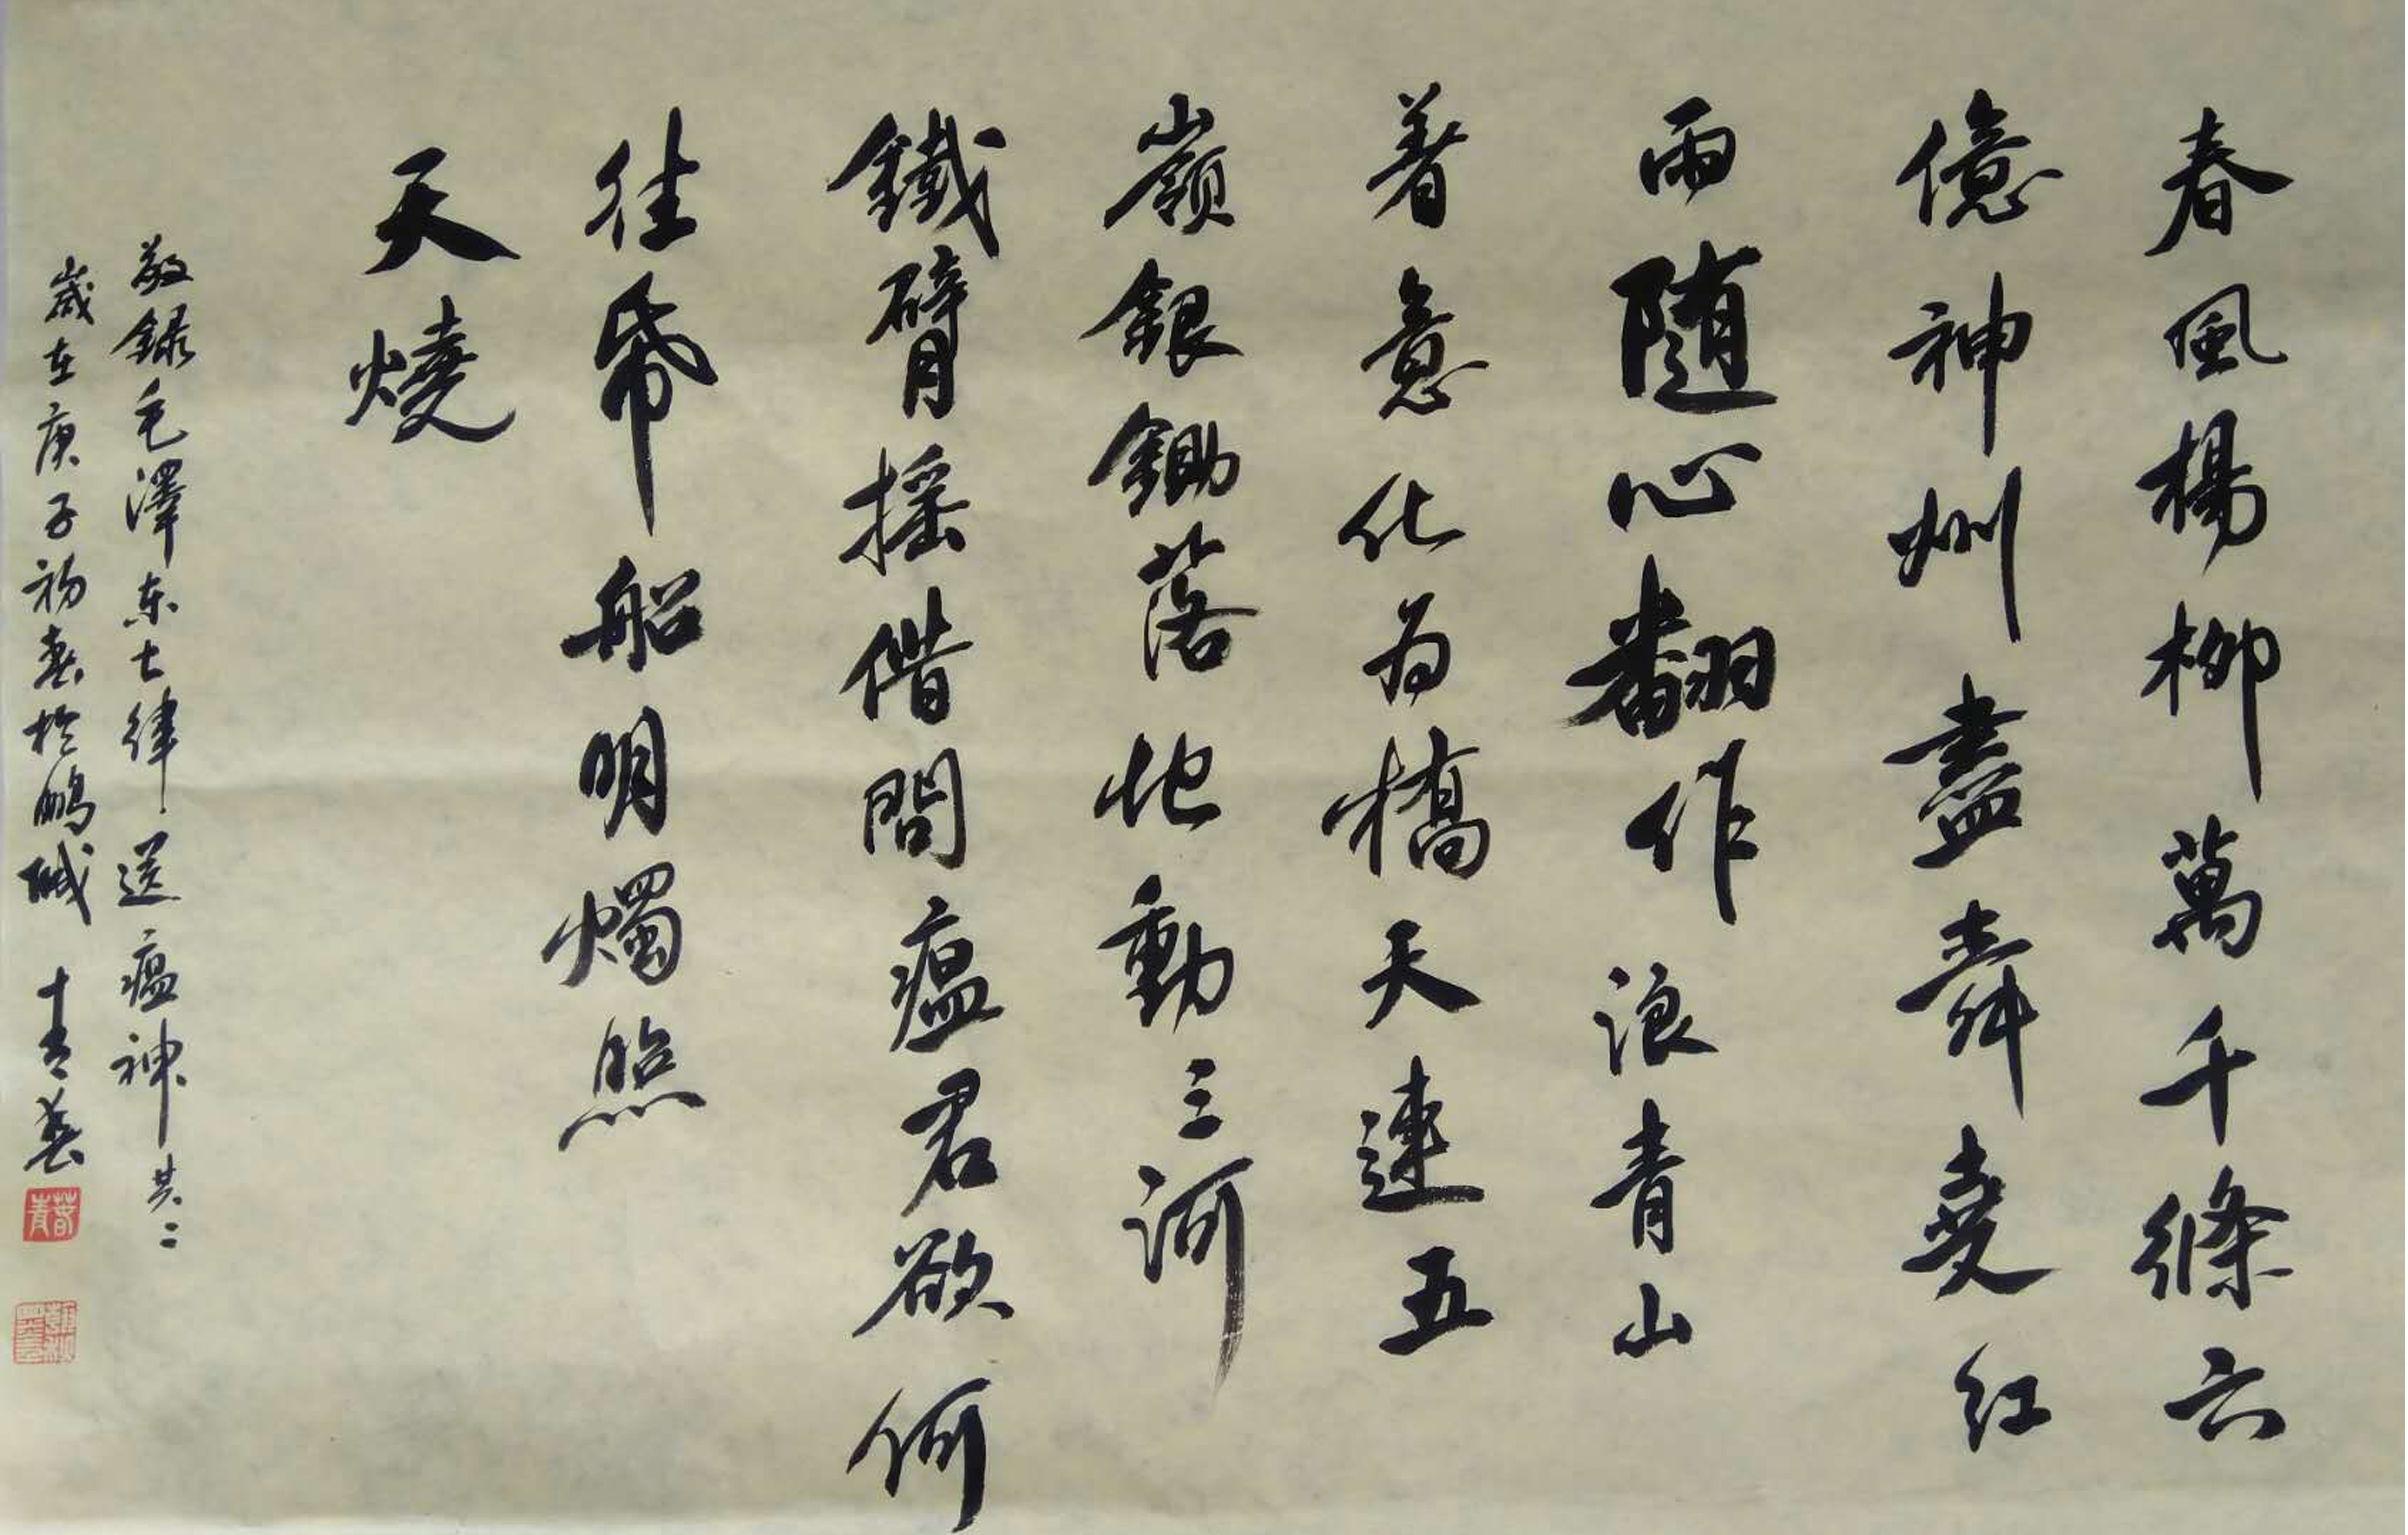 春風楊柳萬千條六
億神州盡舜堯紅
雨随心翻作浪青山
著意化為橋天連五
嶺銀鋤落地動三河
鐵臂摇借問瘟君欲何
往紙船明燭照
天燒
敬録毛澤东七律送瘟神其二
歲在庚子初春於鹏城 青春